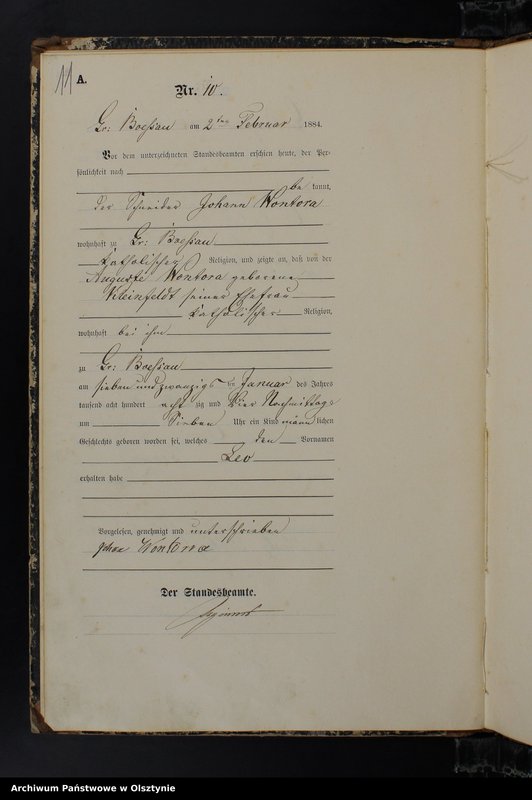 11
A.
Nr. 10.
Gr: Boessau am 2ten Februar 1884.
Vor dem unterzeichneten Standesbeamten erschien heute, der Per-
sönlichkeit nach
be kannt,
der Schneider Johann Wontora
wohnhaft zu Gr: Boessau
katholischer Religion, und zeigte an, daß von der
Auguste Wontora geborene
Kleinfeldt seiner Ehefrau
katholischer Religion,
wohnhaft bei ihm
zu Gr: Boessau
am sieben und zwanzigs ten Januar des Jahres
tausend acht hundert acht zig und Vier Nachmittags
um Sieben Uhr ein Kind männ lichen
Geschlechts geboren worden sei, welches den Vornamen
Leo
erhalten habe
Vorgelesen, genehmigt und unterschrieben
Johan Wontora
Der Standesbeamte.
Archiwum Państwowe w Olsztynie